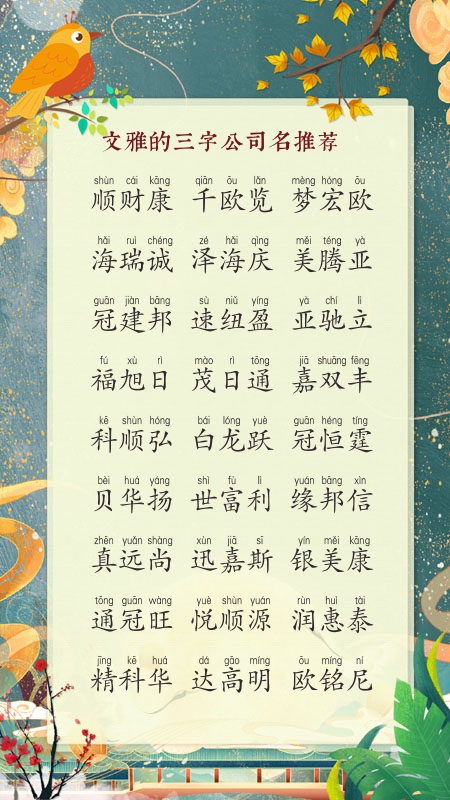 文雅的三字公司名推荐
shùn cái kāng qiān ōu lǎn mèng hóng ōu
顺财康 千欧览 梦宏欧
hǎi ruì chéng zé hǎi qìng měi téng yà
海瑞诚 泽海庆 美腾亚
guān jiàn bāng sù niǔ yíng yà chí lì
冠建邦 速纽盈 亚驰立
fú xù rì mào rì tōng jiā shuāng fēng
福旭日 茂日通 嘉双丰
kē shùn hóng bái lóng yuè guān héng tíng
科顺弘 白龙跃 冠恒霆
bèi huá yáng shì fù lì yuán bāng xìn
贝华扬 世富利 缘邦信
zhēn yuǎn shàng xùn jiā sī yín měi kāng
真远尚 迅嘉斯 银美康
tōng guān wàng yuè shùn yuán rùn huì tài
通冠旺 悦顺源 润惠泰
jīng kē huá dá gāo míng ōu míng ní
精科华 达高明 欧铭尼